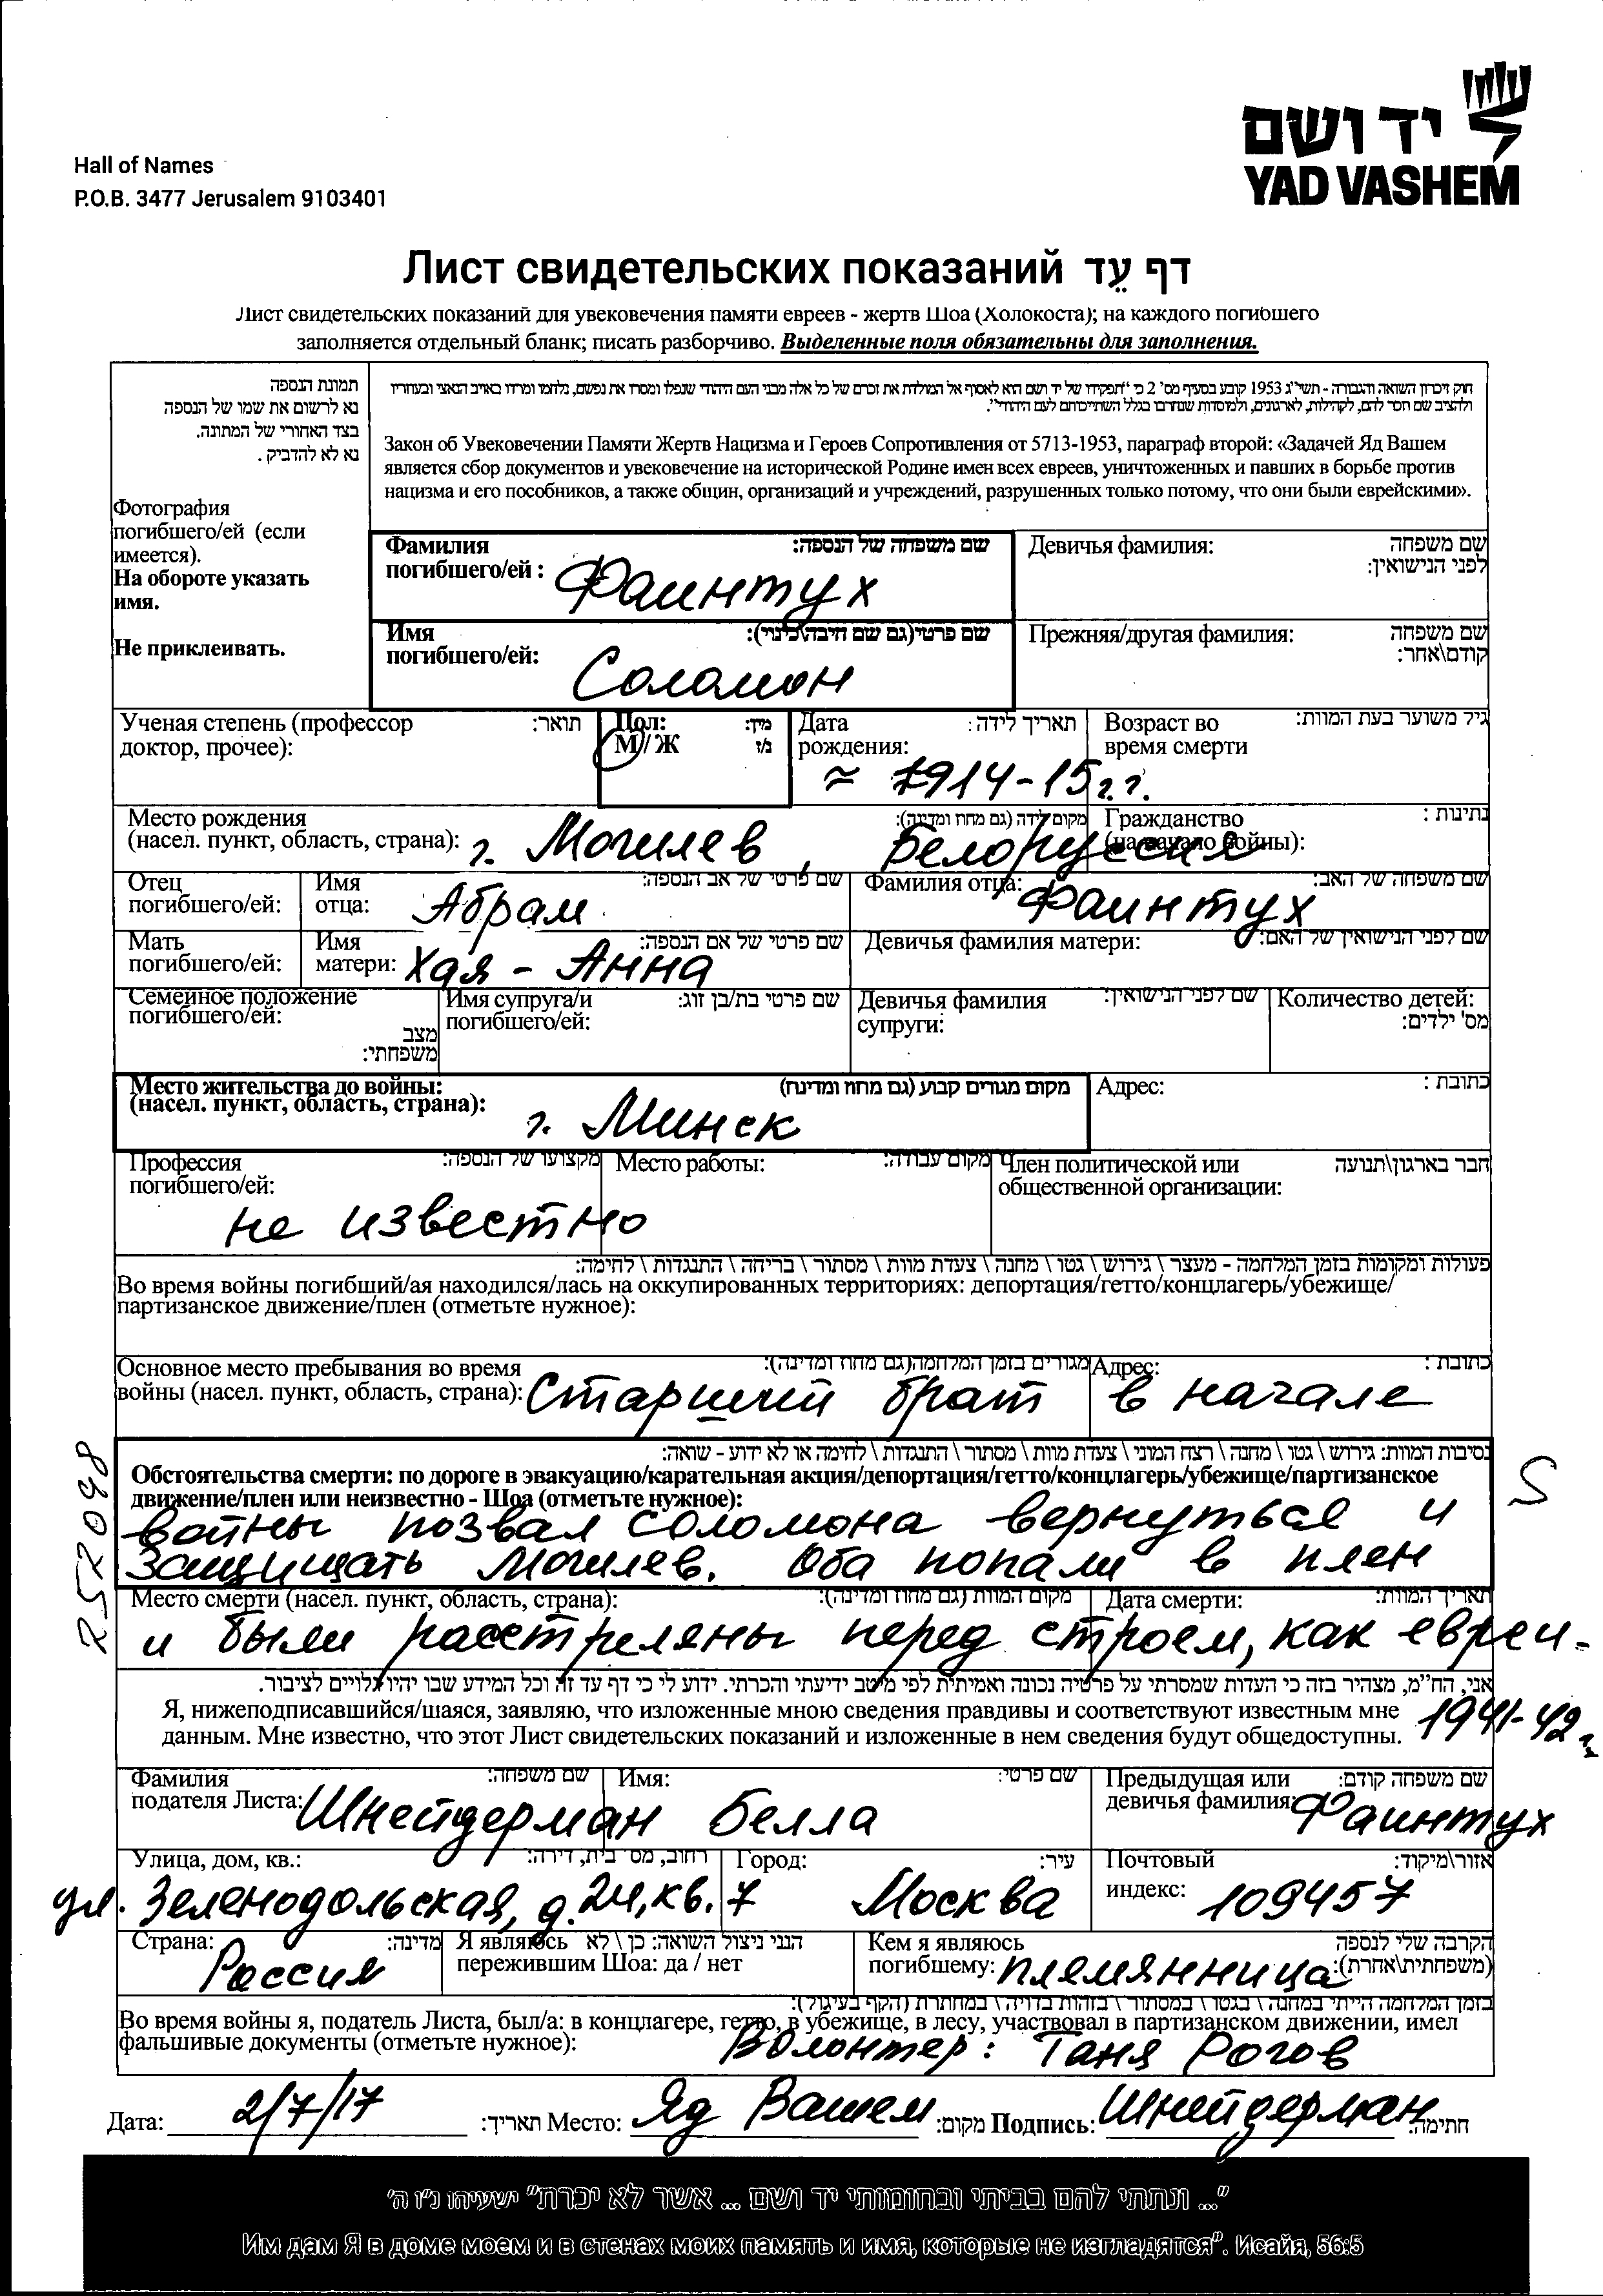 יד ושם
YAD VASHEM
Hall of Names
P.O.B. 3477 Jerusalem 9103401
Лист свидетельских показаний דף עֵד
Лист свидетельских показаний для увековечения памяти евреев - жертв Шоа (Холокоста); на каждого погибшего
заполняется отдельный бланк; писать разборчиво. Выделенные поля обязательны для заполнения.
תמונת הנספה
נא לרשום את שמו של הנספה
בצד האחורי של המתונה.
נא לא להדביק .
Фотография
погибшего/ей (если
имеется).
На обороте указать
имя.
Не приклеивать.
חוק זיכרון השואה והגבורה - תשי"ג 1953 קובע בסעיף מס' 2 כי "תפקידו של יד ושם הוא לאסוף אל המולדת את זכרם של כל אלה מבני העם היהודי שנפלו ומסרו את נפשם, נלחמו ומרדו באויב הנאצי ובעוזריו
ולהציב שם וזכר להם, לקהילות, לארגונים, ולמוסדות שנחרבו בגלל השתייכותם לעם היהודי".
Закон об Увековечении Памяти Жертв Нацизма и Героев Сопротивления от 5713-1953, параграф второй: «Задачей Яд Вашем
является сбор документов и увековечение на исторической Родине имен всех евреев, уничтоженных и павших в борьбе против
нацизма и его пособников, а также общин, организаций и учреждений, разрушенных только потому, что они были еврейскими».
Фамилия שם משפחה של הנספה:
погибшего/ей : Фаинтух
Девичья фамилия: שם משפחה
לפני הנישואין:
Имя שם פרטי(גם שם חיבה\כינוי):
погибшего/ей: Соломон
Прежняя/другая фамилия: שם משפחה
קודם\אחר:
Ученая степень (профессор תואר:
доктор, прочее):
Пол: מין:
М / Ж ז/נ
Дата תאריך לידה:
рождения: ≈ 1914-15 г.г.
Возраст во גיל משוער בעת המוות:
время смерти
Место рождения
(насел. пункт, область, страна): מקום לידה (גם מחוז ומדינה):
г. Могилев, Белоруссия
Гражданство נתינות :
(на начало войны):
Отец
погибшего/ей:
Имя שם פרטי של אב הנספה:
отца: Абрам
Фамилия отца: שם משפחה של האב:
Фаинтух
Мать
погибшего/ей:
Имя שם פרטי של אם הנספה:
матери: Хая - Анна
Девичья фамилия матери: שם לפני הנישואין של האם:
Семейное положение
погибшего/ей:
מצב
משפחתי:
Имя супруга/и שם פרטי בת/בן זוג:
погибшего/ей:
Девичья фамилия שם לפני הנישואין:
супруги:
Количество детей:
מס' ילדים:
Место жительства до войны: מקום מגורים קבוע (גם מחוז ומדינה)
(насел. пункт, область, страна):
г. Минск
Адрес: כתובת :
Профессия מקצועו של הנספה:
погибшего/ей:
не известно
Место работы: מקום עבודה:
Член политической или חבר בארגון\תנועה
общественной организации:
פעולות ומקומות בזמן המלחמה - מעצר \ גירוש \ גטו \ מחנה \ צעדת מוות \ מסתור \ בריחה \ התנגדות \ לחימה:
Во время войны погибший/ая находился/лась на оккупированных территориях: депортация/гетто/концлагерь/убежище/
партизанское движение/плен (отметьте нужное):
Основное место пребывания во время מגורים בזמן המלחמה(גם מחוז ומדינה):
войны (насел. пункт, область, страна): Старший брат
Адрес: כתובת :
в начале
נסיבות המוות: גירוש \ גטו \ מחנה \ רצח המוני \ צעדת מוות \ מסתור \ התנגדות \ לחימה או לא ידוע - שואה:
Обстоятельства смерти: по дороге в эвакуацию/карательная акция/депортация/гетто/концлагерь/убежище/партизанское
движение/плен или неизвестно - Шоа (отметьте нужное):
войны позвал Соломона вернуться и
защищать Могилев. Оба попали в плен
S
252098
Место смерти (насел. пункт, область, страна): מקום המוות (גם מחוז ומדינה):
Дата смерти: תאריך המוות:
и были расстреляны перед строем, как евреи -
אני, הח"מ, מצהיר בזה כי העדות שמסרתי על פרטיה נכונה ואמיתית לפי מיטב ידיעתי והכרתי. ידוע לי כי דף עד זה וכל המידע שבו יהיו גלויים לציבור.
Я, нижеподписавшийся/шаяся, заявляю, что изложенные мною сведения правдивы и соответствуют известным мне
данным. Мне известно, что этот Лист свидетельских показаний и изложенные в нем сведения будут общедоступны.
1941-42 г.
Фамилия שם משפחה:
подателя Листа: Шнейдерман
Имя: שם פרטי:
Белла
Предыдущая или שם משפחה קודם:
девичья фамилия: Фаинтух
Улица, дом, кв.: רחוב, מס' בית, דירה:
ул. Зеленодольская, д. 24, кв. 7
Город: עיר:
Москва
Почтовый אזור\מיקוד:
индекс: 109457
Страна: מדינה:
Россия
Я являюсь הנני ניצול השואה: כן \ לא
пережившим Шоа: да / нет
Кем я являюсь הקרבה שלי לנספה
погибшему: племянница (משפחתית\אחרת):
בזמן המלחמה הייתי במחנה \ בגטו \ במסתור \ בזהות בדויה \ במחתרת (הקף בעיגול):
Во время войны я, податель Листа, был/а: в концлагере, гетто, в убежище, в лесу, участвовал в партизанском движении, имел
фальшивые документы (отметьте нужное): Волонтер: Таня Рогов
Дата: 2/7/17 תאריך: Место: Яд Вашем מקום: Подпись: Шнейдерман חתימה:
"... ונתתי להם בביתי ובחומותי יד ושם ... אשר לא יכרת" ישעיהו נ"ו ה'
Им дам Я в доме моем и в стенах моих память и имя, которые не изгладятся". Исайя, 56:5